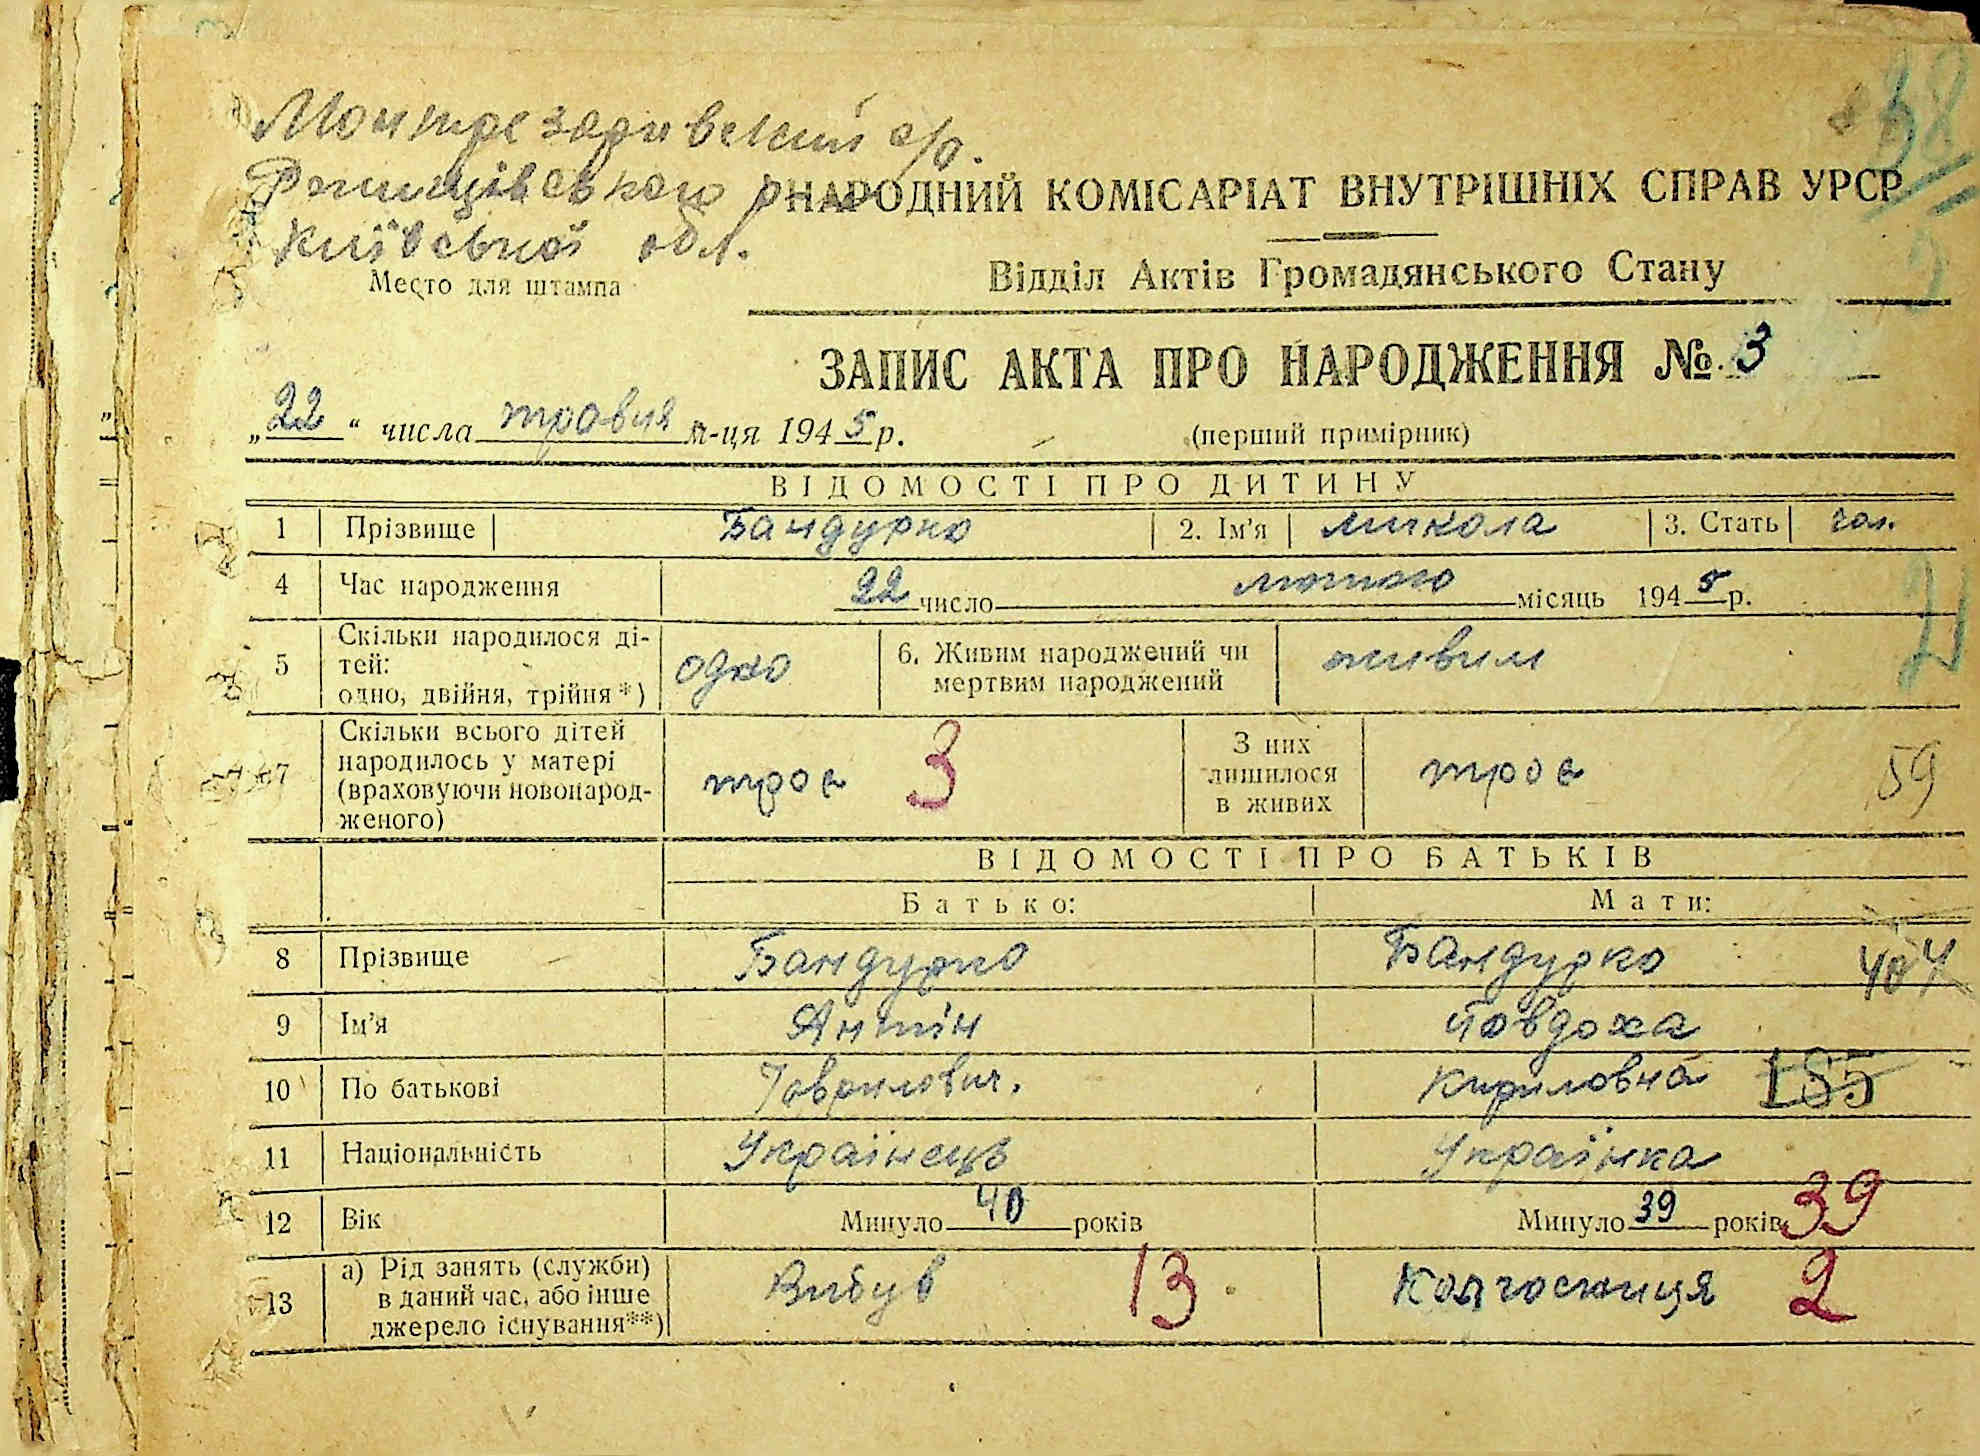 Монтрезарівський с/р.
Ржищівського р-
Київської обл.
Место для штампа
НАРОДНИЙ КОМІСАРІАТ ВНУТРІШНІХ СПРАВ УРСР
Відділ Актів Громадянського Стану
ЗАПИС АКТА ПРО НАРОДЖЕННЯ № 3
„22“ числа травня м-ця 1945 р.
(перший примірник)
ВІДОМОСТІ ПРО ДИТИНУ
1 Прізвище Бандурко 2. Ім’я Микола 3. Стать чол.
4 Час народження 22 число лютого місяць 1945 р.
5 Скільки народилося ді-
тей:
одно, двійня, трійня*) одно 6. Живим народжений чи
мертвим народжений живим
7 Скільки всього дітей
народилось у матері
(враховуючи новонарод-
женого) троє 3 З них
лишилося
в живих троє 59
ВІДОМОСТІ ПРО БАТЬКІВ
Батько: Мати:
8 Прізвище Бандурко Бандурко 404
9 Ім’я Антін Йовдоха
10 По батькові Гаврилович. Кириловна 185
11 Національність Українець Українка
12 Вік Минуло 40 років Минуло 39 років 39
13 а) Рід занять (служби)
в даний час, або інше
джерело існування**) Вибув 13 Колгоспниця 2